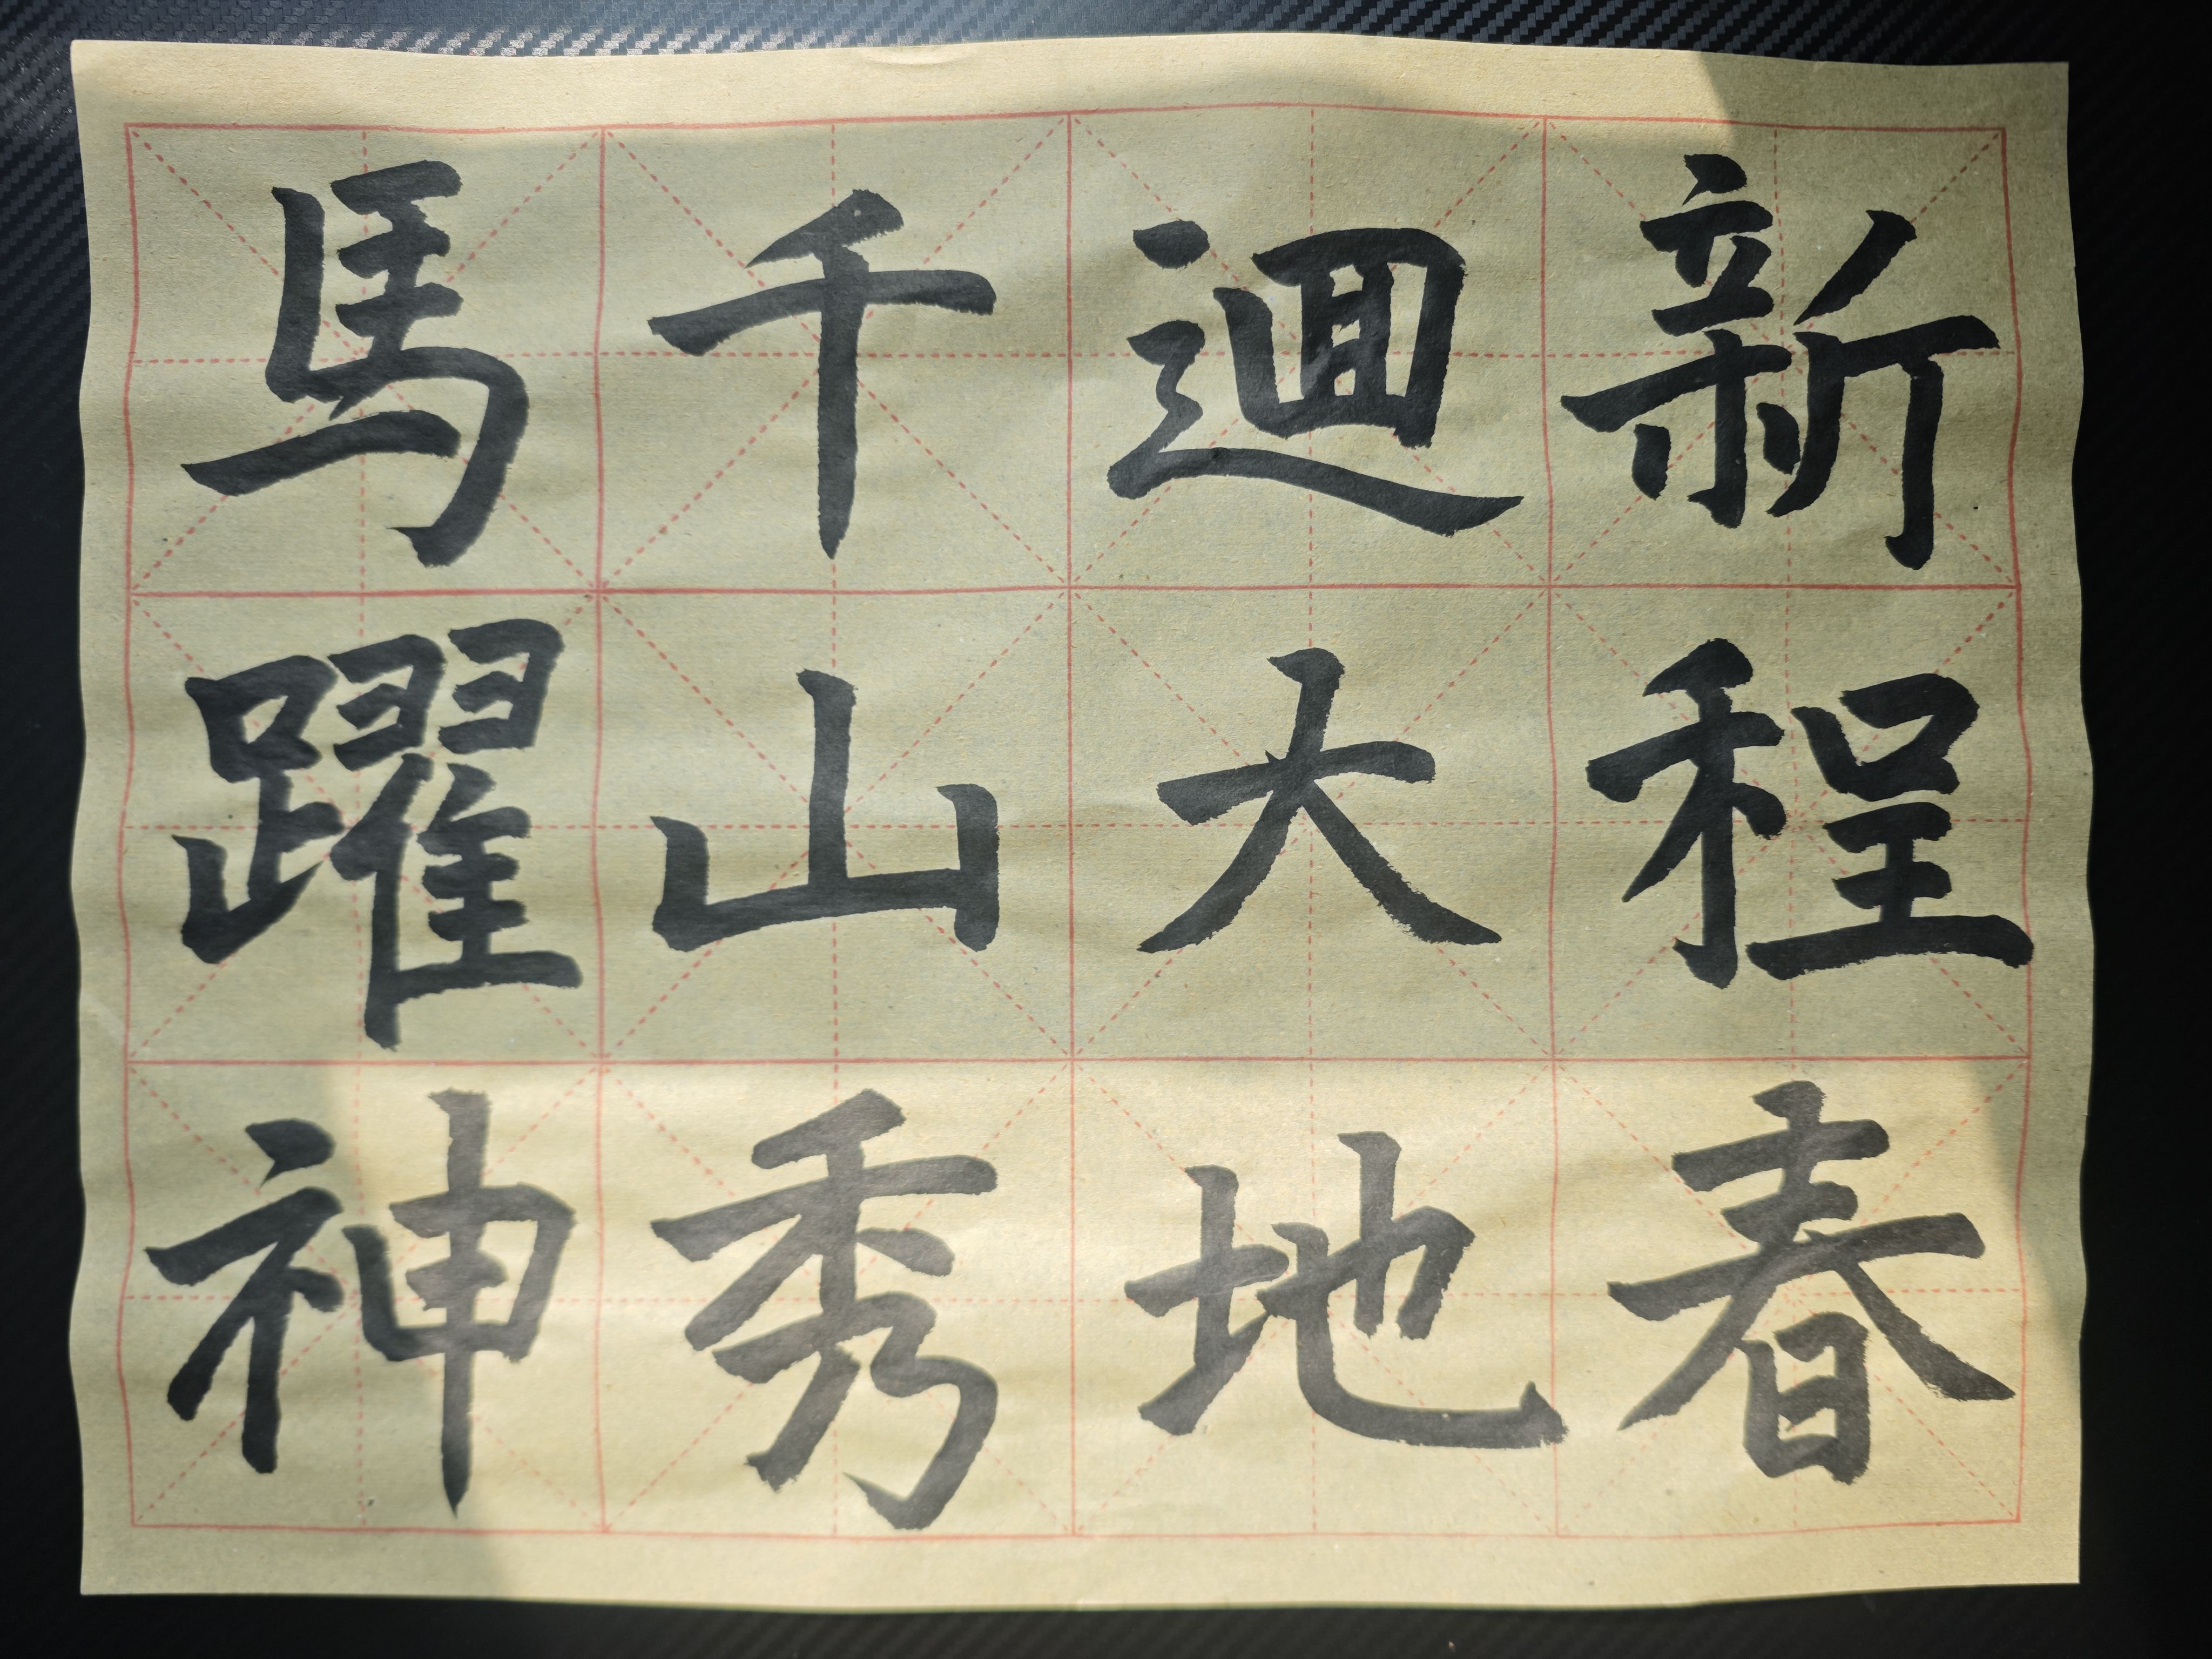 新程春
迴大地
千山秀
馬躍神